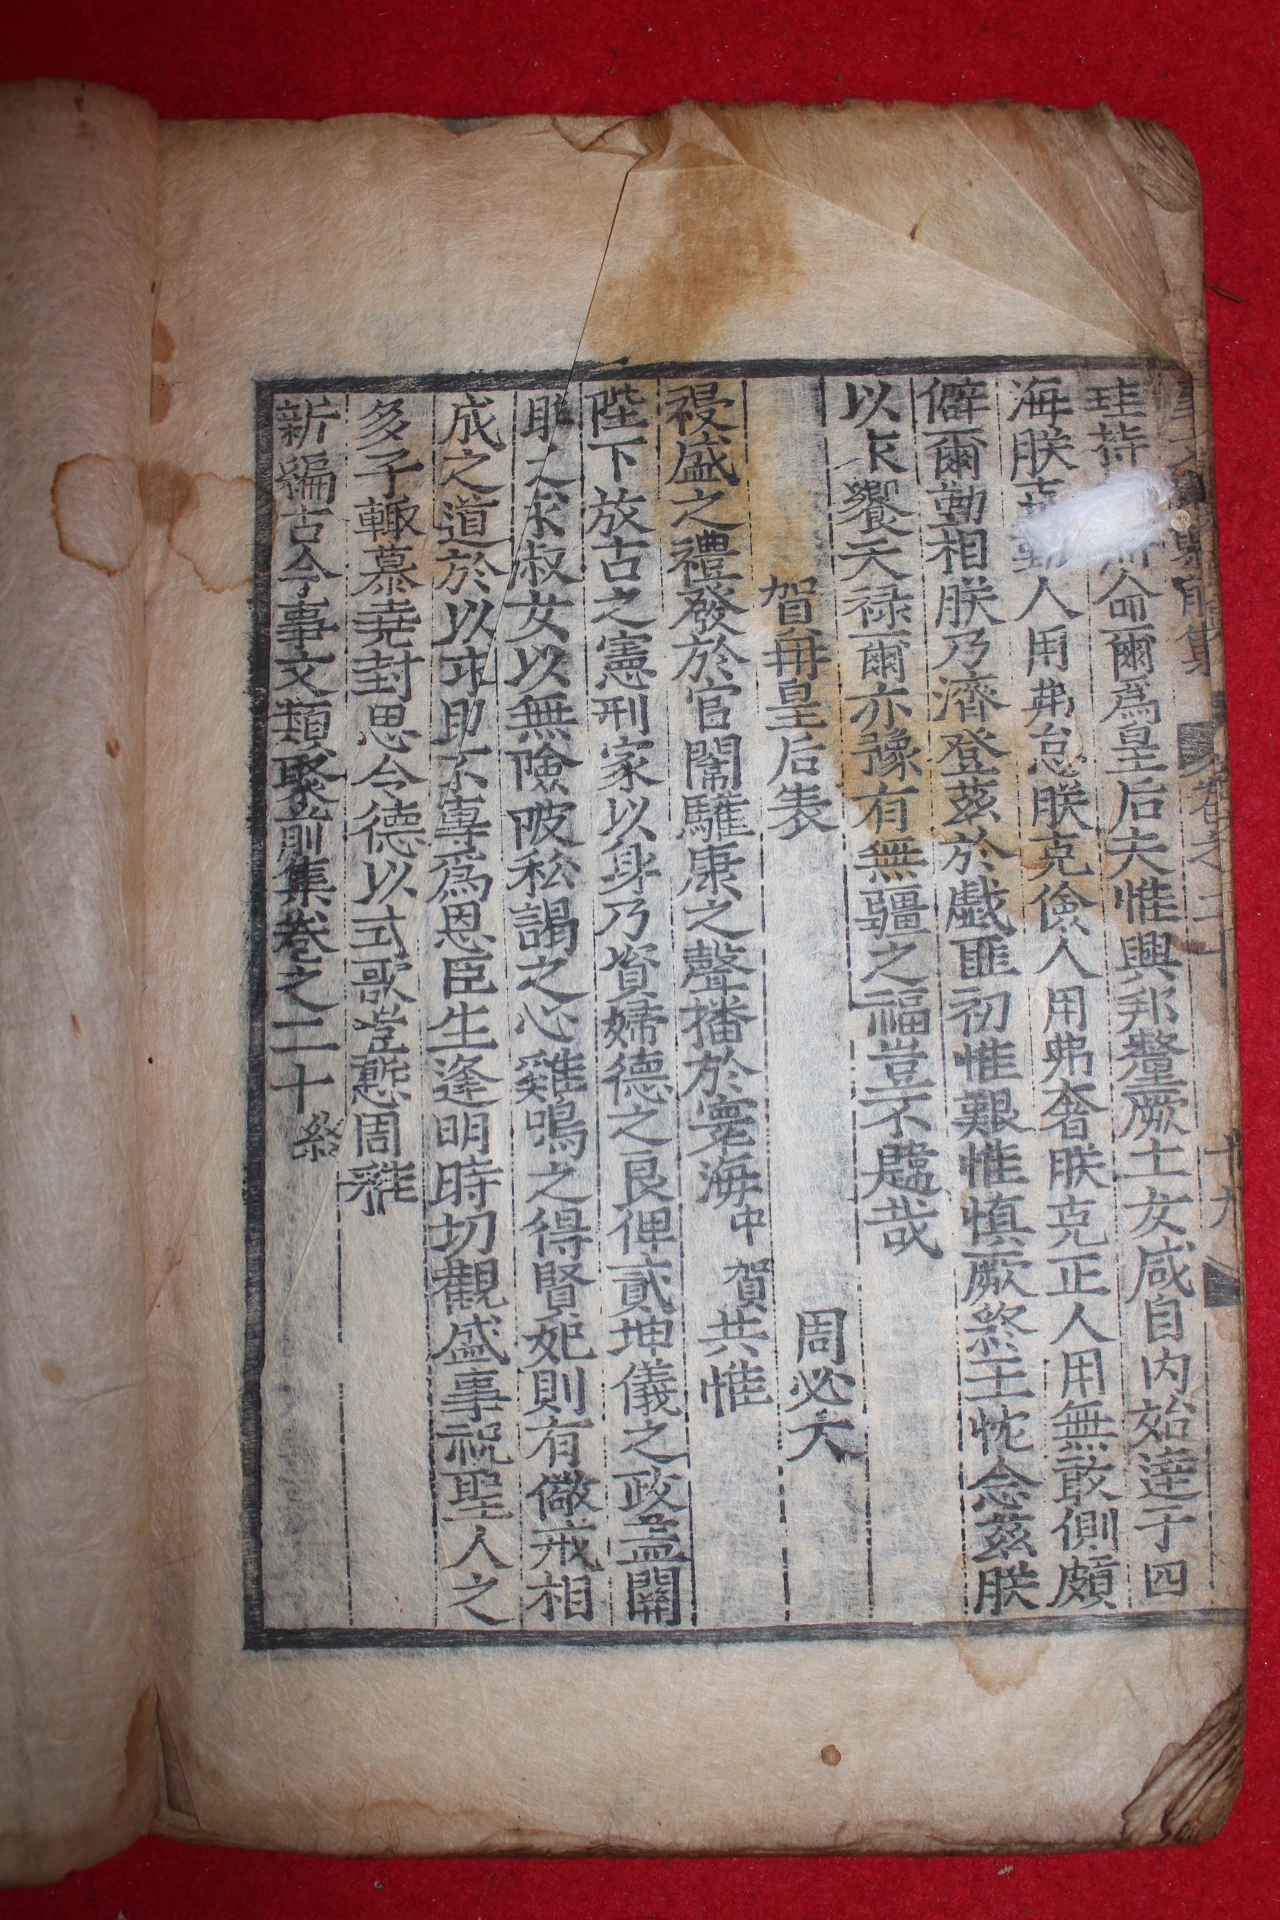 珪持命爾爲皇后夫惟興邦釐厥士女咸自内始達于四
海朕人用弗怠朕克儉人用弗奢朕克正人用無敢側頗
僻爾勤相朕乃濟登茲於戱匪初惟艱惟愼厥終王忱念茲朕
以永饗天禄爾亦豫有無疆之福豈不韙哉
賀冊皇后表 周必大
禮盛之禮發於官闈驩康之聲播於寰海中賀共惟
陛下放古之憲刑家以身乃資婦德之良俾貳坤儀之政盖關
雎之求叔女以無險陂私謁之心雞鳴之得賢妃則有儆戒相
成之道於以求助不專爲恩臣生逢明時切觀盛事祝聖人之
多子輙慕堯封思令德以式歌豈慙周雅
新編古今事文類聚前集卷之二十 終
卷之二十 十九